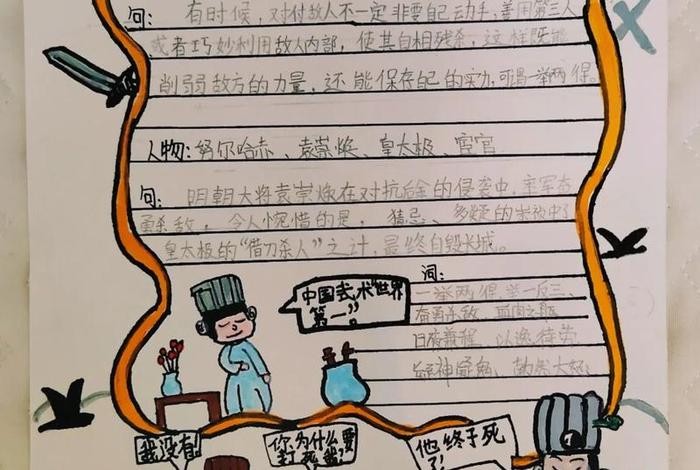 句: 有时候,对付敌人不一定非要自己动手,善用第三人
或者巧妙利用敌人内部,使其自相残杀,这样既能
削弱敌方的力量,还能保存自己的实力,可谓一举两得。
人物:努尔哈赤、袁崇焕、皇太极、宦官
句: 明朝大将袁崇焕在对抗后金的侵袭中,率军奋
勇杀敌,令人惋惜的是,猜忌、多疑的崇祯中了
皇太极的“借刀杀人”之计,最终自毁长城。
词:
一举两得、举一反三、
奋勇杀敌、血肉之躯
日夜兼程、以逸待劳
勃然大怒
中国武术“世界
第一”。
我没有!
你为什么要
打死我?
他终于死
了!